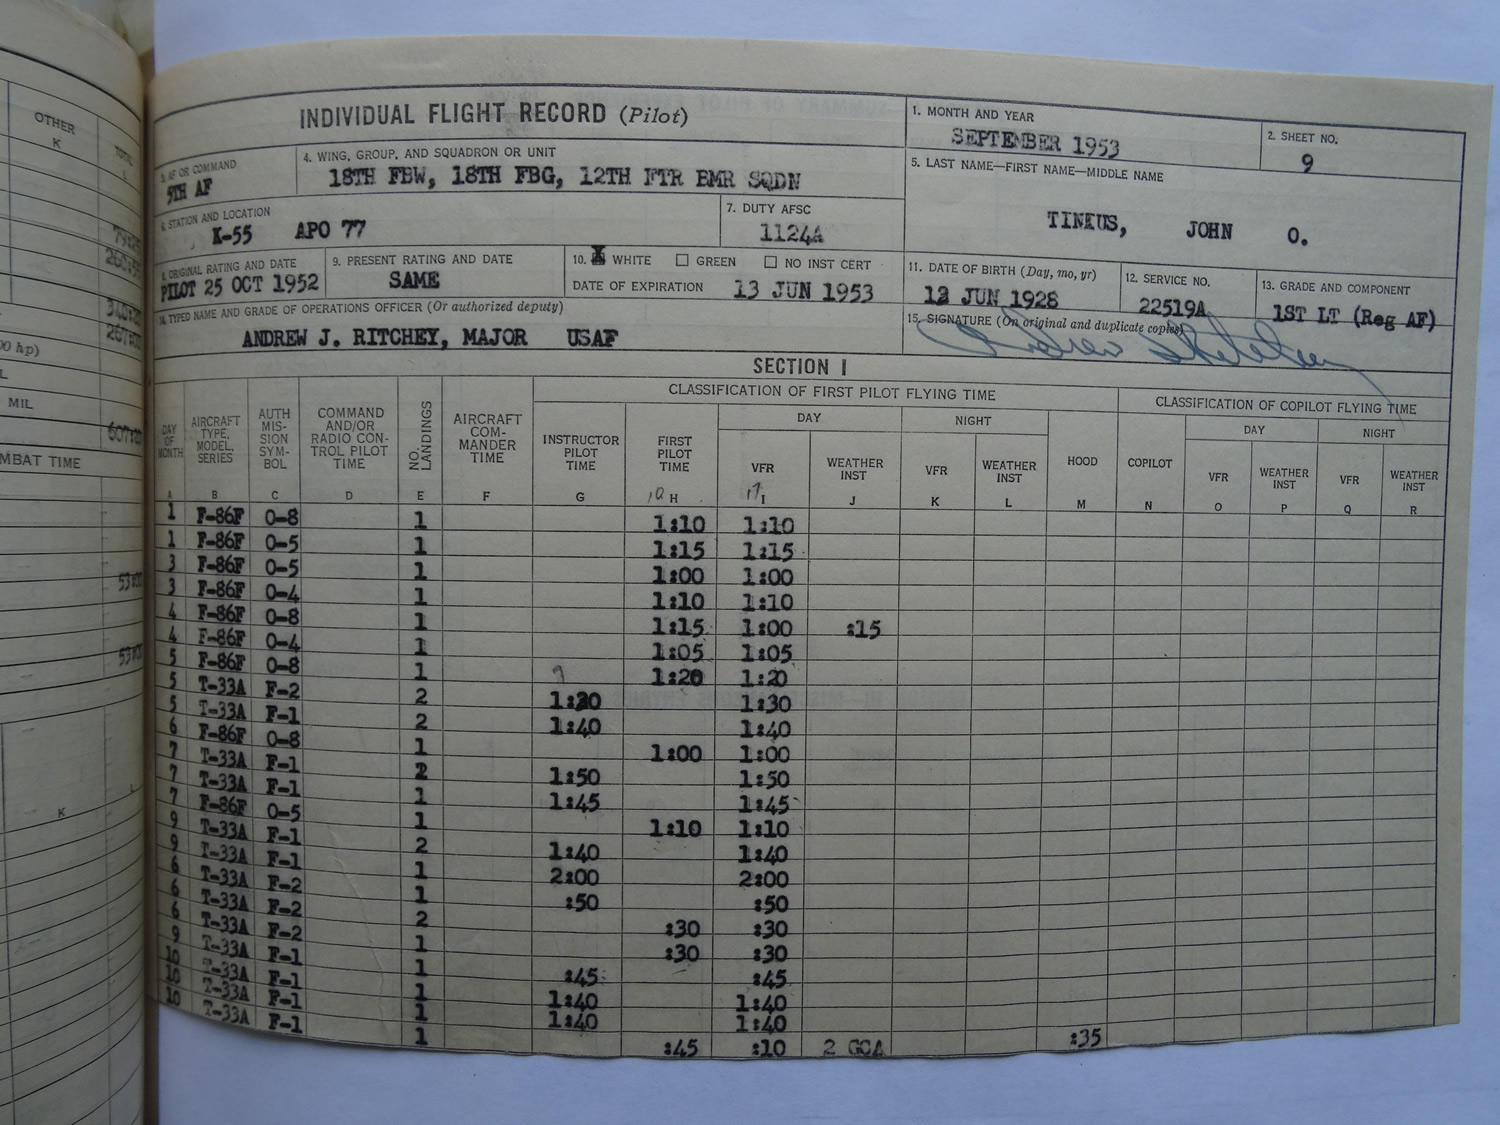 OTHER
K
TOTAL
79:25
260:55
340:20
267:00
00 hp)
L
MIL
607:20
MBAT TIME
53:00
53:00
K
L
INDIVIDUAL FLIGHT RECORD (Pilot)
1. MONTH AND YEAR
SEPTEMBER 1953
2. SHEET NO.
9
3. AF OR COMMAND
5TH AF
4. WING, GROUP, AND SQUADRON OR UNIT
18TH FBW, 18TH FBG, 12TH FTR BMR SQDN
5. LAST NAME—FIRST NAME—MIDDLE NAME
TINIUS, JOHN O.
6. STATION AND LOCATION
K-55 APO 77
7. DUTY AFSC
1124A
8. ORIGINAL RATING AND DATE
PILOT 25 OCT 1952
9. PRESENT RATING AND DATE
SAME
10. X WHITE GREEN NO INST CERT
DATE OF EXPIRATION 13 JUN 1953
11. DATE OF BIRTH (Day, mo, yr)
12 JUN 1928
12. SERVICE NO.
22519A
13. GRADE AND COMPONENT
1ST LT (Reg AF)
14. TYPED NAME AND GRADE OF OPERATIONS OFFICER (Or authorized deputy)
ANDREW J. RITCHEY, MAJOR USAF
15. SIGNATURE (On original and duplicate copies)
SECTION I
CLASSIFICATION OF FIRST PILOT FLYING TIME
CLASSIFICATION OF COPILOT FLYING TIME
DAY NIGHT DAY NIGHT
DAY OF MONTH
AIRCRAFT TYPE, MODEL, SERIES
AUTH MIS- SION SYM- BOL
COMMAND AND/OR RADIO CON- TROL PILOT TIME
NO. LANDINGS
AIRCRAFT COM- MANDER TIME
INSTRUCTOR PILOT TIME
FIRST PILOT TIME
VFR
WEATHER INST
VFR
WEATHER INST
HOOD
COPILOT
VFR
WEATHER INST
VFR
WEATHER INST
A B C D E F G H I J K L M N O P Q R
1 F-86F O-8 1 1:10 1:10
1 F-86F O-5 1 1:15 1:15
3 F-86F O-5 1 1:00 1:00
3 F-86F O-4 1 1:10 1:10
4 F-86F O-8 1 1:15 1:00 :15
4 F-86F O-4 1 1:05 1:05
5 F-86F O-8 1 1:20 1:20
5 T-33A F-2 2 1:30 1:30
5 T-33A F-1 2 1:40 1:40
6 F-86F O-8 1 1:00 1:00
7 T-33A F-1 2 1:50 1:50
7 T-33A F-1 1 1:45 1:45
7 F-86F O-5 1 1:10 1:10
9 T-33A F-1 2 1:40 1:40
9 T-33A F-1 1 2:00 2:00
6 T-33A F-2 1 :50 :50
6 T-33A F-2 2 :30 :30
6 T-33A F-2 1 :30 :30
9 T-33A F-1 1 :45 :45
10 T-33A F-1 1 1:40 1:40
10 T-33A F-1 1 1:40 1:40
10 T-33A F-1 1 :45 :10 2 GCA :35